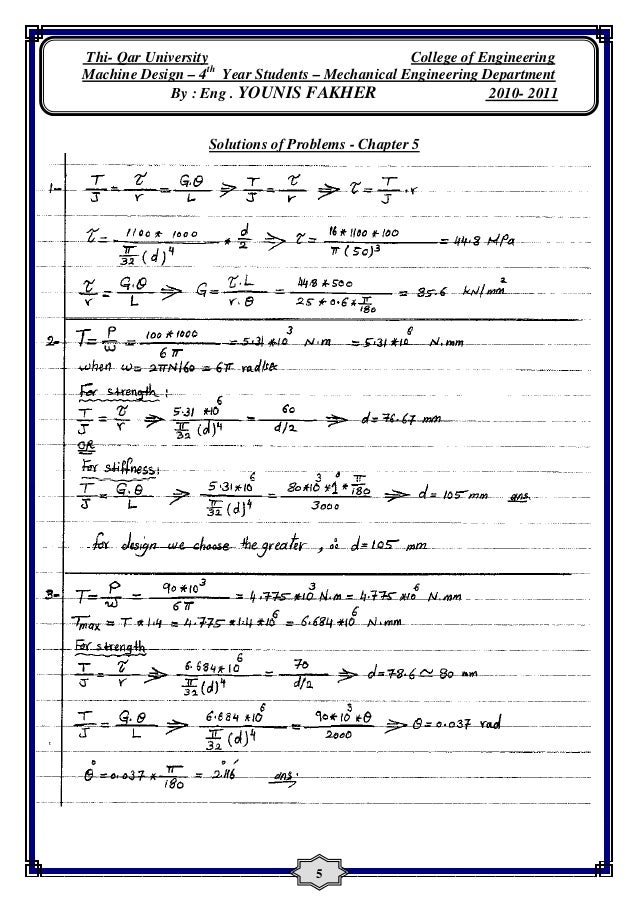 Thi- Qar University College of Engineering
Machine Design – 4th Year Students – Mechanical Engineering Department
By : Eng . YOUNIS FAKHER 2010- 2011
Solutions of Problems - Chapter 5
1- T/J = τ/r = G.θ/L ⇒ T/J = τ/r ⇒ τ = T/J . r
τ = 1100 * 1000 / (π/32 (d)^4) * d/2 ⇒ τ = 16*1100*100 / (π (50)^3) = 44.8 MPa
τ/r = G.θ/L ⇒ G = τ.L / (r.θ) = 44.8 * 500 / (25 * 0.6 * π/180) = 85.6 kN/mm^2
2- T = P/ω = 100 * 1000 / 6π = 5.31 *10^3 N.m = 5.31*10^6 N.mm
when ω = 2πN/60 = 6π rad/sec
For strength :
T/J = τ/r ⇒ 5.31 *10^6 / (π/32 (d)^4) = 60 / (d/2) ⇒ d = 76.67 mm
OR
For stiffness:
T/J = G.θ/L ⇒ 5.31*10^6 / (π/32 (d)^4) = 80*10^3 * 1° * π/180 / 3000 ⇒ d = 105 mm ans.
for design we choose the greater , ∴ d = 105 mm
3- T = P/ω = 90 * 10^3 / 6π = 4.775 *10^3 N.m = 4.775 *10^6 N.mm
Tmax = T * 1.4 = 4.775 *1.4 *10^6 = 6.684 *10^6 N.mm
For strength
T/J = τ/r ⇒ 6.684 * 10^6 / (π/32 (d)^4) = 70 / (d/2) ⇒ d = 78.6 ≃ 80 mm
T/J = G.θ/L ⇒ 6.684 *10^6 / (π/32 (d)^4) = 90*10^3 *θ / 2000 ⇒ θ = 0.037 rad
θ° = 0.037 * π/180 = 2°.116' ans.
5